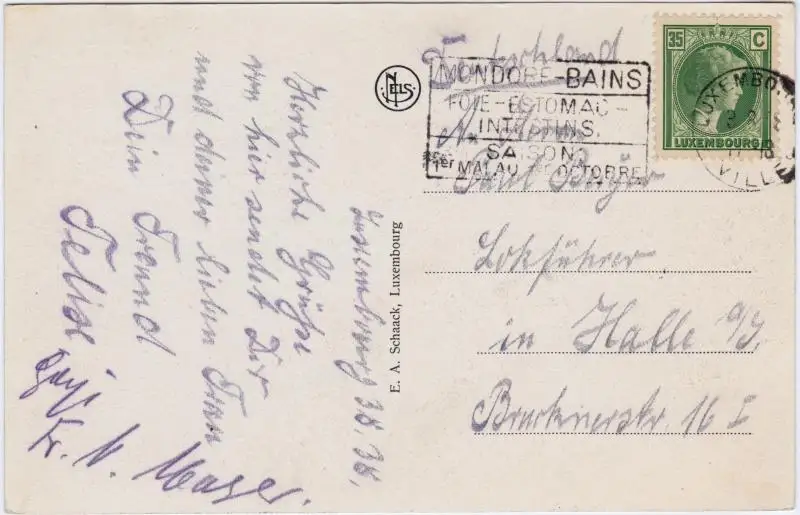 Luxembourg 3.8.36.
Herzliche Grüße
von hier sendet Dir
und deiner lieben Frau
Dein Freund
Felix
Fr. N. Mayer.
E. A. Schaack, Luxembourg
NELS
Deutschland
MONDORF-BAINS
FOIE-ESTOMAC-
INTESTINS.
SAISON:
1er MAI AU 1er OCTOBRE
35 C
LUXEMBOURG
LUXEMBOURG
VILLE
An Herrn
Paul
Lokführer
in Halle a/S.
Brucknerstr. 16 I